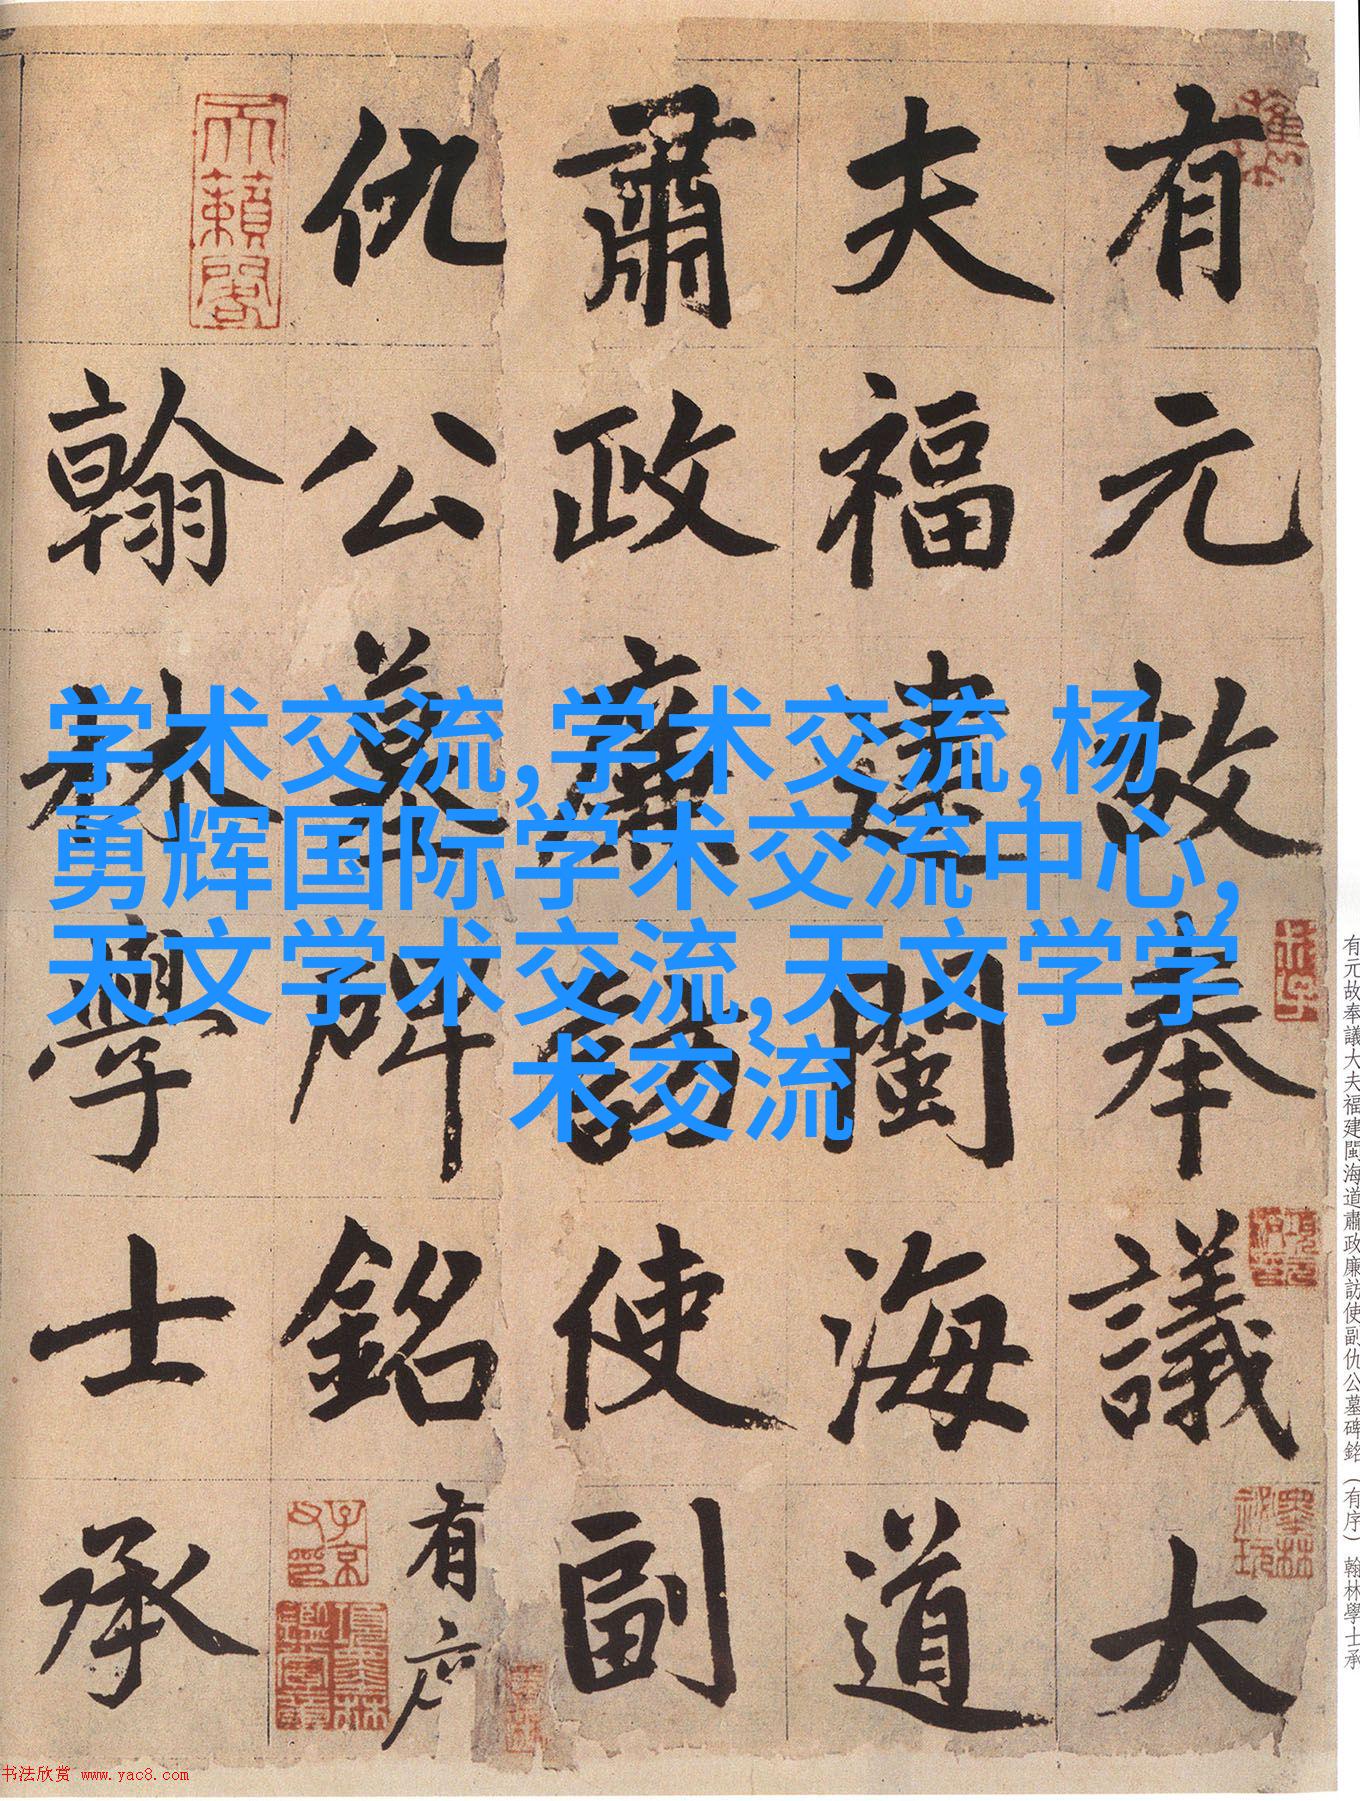 有元故奉議大
夫福建閩海道
肅政廉訪使副
仇公墓碑銘有序
翰林學士承
天籟閣
子京父印
項墨林鑑賞章
墨林祕玩
学术交流,学术交流,杨
勇辉国际学术交流中心,
天文学术交流,天文学学
术交流
有元故奉議大夫福建閩海道肅政廉訪使副仇公墓碑銘(有序) 翰林學士承
书法欣赏 www.yac8.com